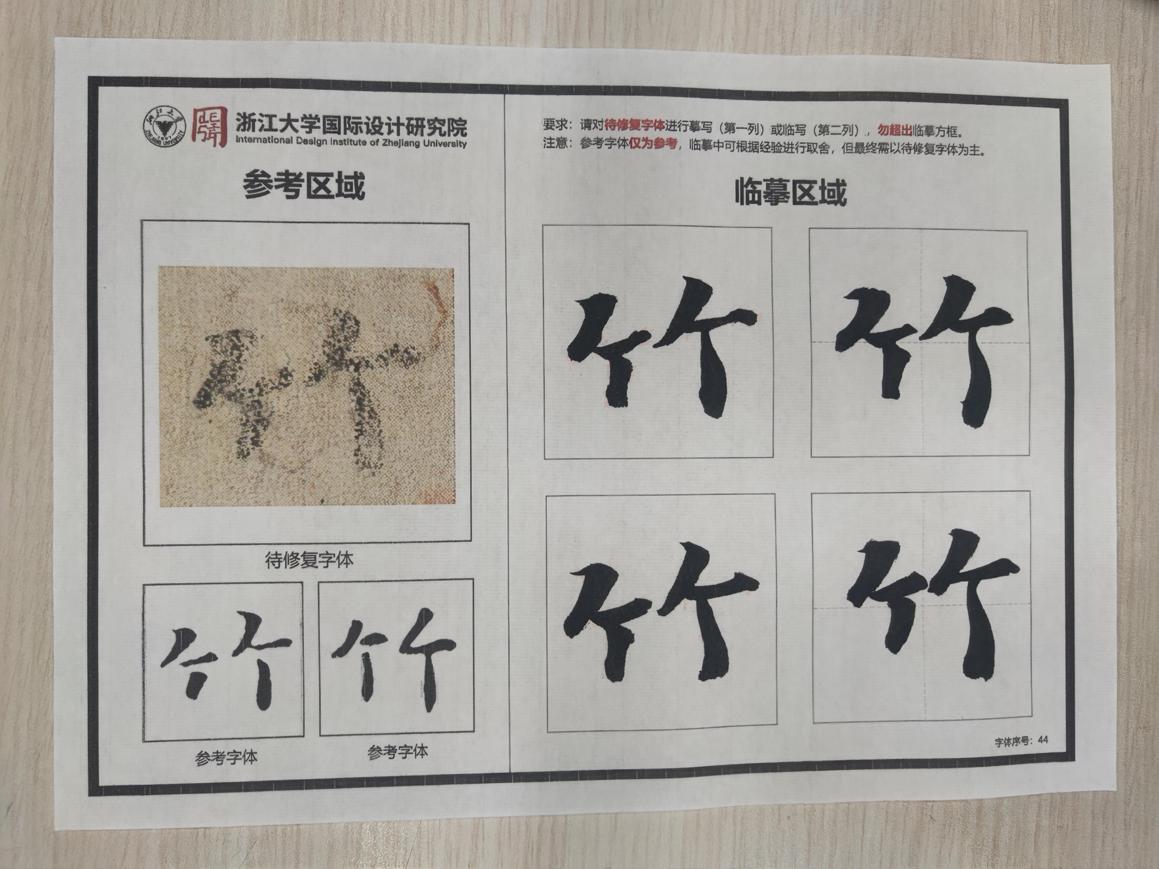 浙江大学国际设计研究院
International Design Institute of Zhejiang University
参考区域
竹
待修复字体
竹
竹
参考字体
参考字体
要求：请对待修复字体进行摹写（第一列）或临写（第二列），勿超出临摹方框。
注意：参考字体仅为参考，临摹中可根据经验进行取舍，但最终需以待修复字体为主。
临摹区域
竹
竹
竹
竹
字体序号：44